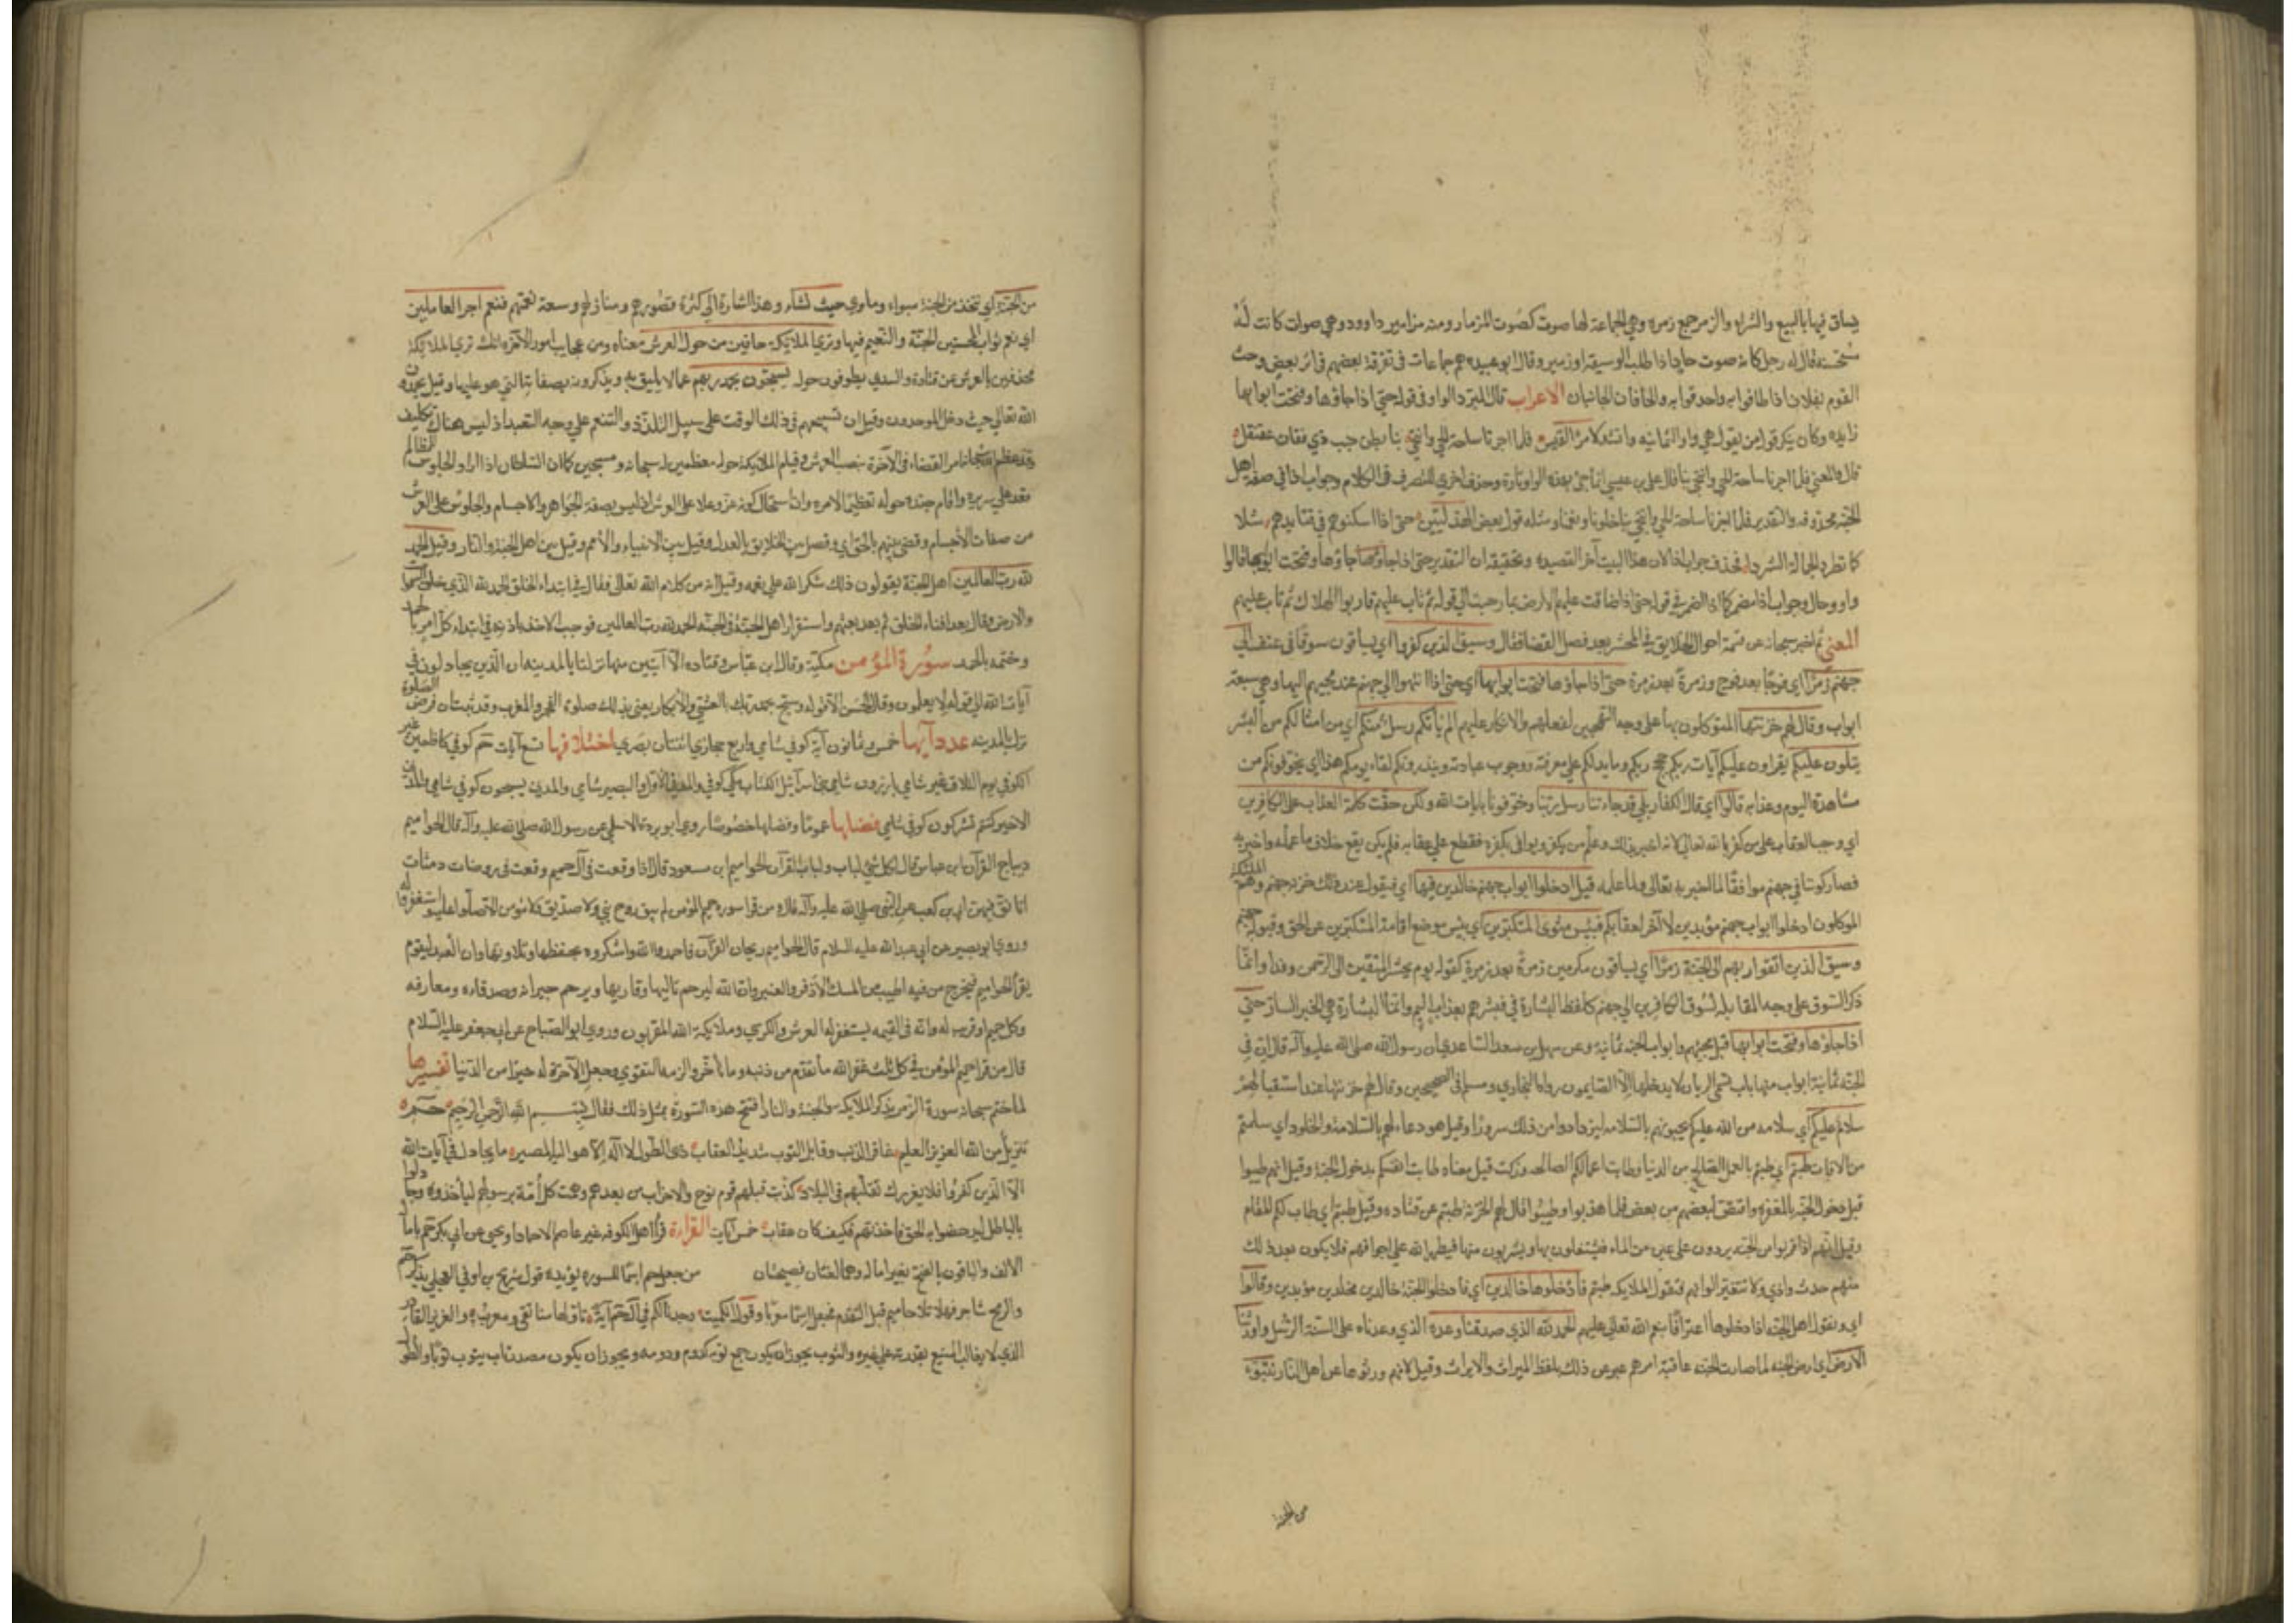 يساق فيها بالبيع والشراء والزمر جمع زمرة وهي الجماعة لها صوت كصوت المزمار ومنه مزامير داوود وهي صوات كانت له
كانه صوت حاد اذا طلب الوسيقة او زمير وقال ابو عبيده هم جماعات في تفرقة بعضهم في اثر بعض وحف
القوم بفلان اذا طافوا به واحدقوا به والحافان الجانبان الاعراب قال المبرد الواو في قوله حتى اذا جاؤها وفتحت ابوابها
زايدة وكان ينكر قول من يقول هي واو الثمانية وانشد لامرئ القيس فلما اجزنا ساحة الحي وانتحى بنا بطن خبت ذي عقنقل
قال والمعنى فلما اجزنا ساحة الحي وانتحى بنا قال علي بن عيسى انما جئ بهذه الواو تارة وحذف اخرى للتصرف في الكلام وجواب اذا في صفة اهل
الجنة محذوف والتقدير فلما اجزنا ساحة الحي وانتحى بنا خلونا ونعمنا ومثله قول بعض الهذليين حتى اذا اسكنوهم في قتايدهم شلا
كما تطرد الجمالة الشردا فحذف جواب اذا لان هذا البيت آخر القصيدة وتحقيقه ان التقدير حتى اذا جاؤها جاؤها وفتحت ابوابها فالواو
واو حال وجواب اذا مضمر كما اذا اضمر في قوله حتى اذا ضاقت عليهم الارض بما رحبت الى قوله ثم تاب عليهم قاربوا الهلاك ثم تاب عليهم
المعنى ثم اخبر سبحانه عن قسمة احوال الخلايق في المحشر بعد فصل القضا فقال وسيق الذين كفروا اي يساقون سوقا في عنف الى
جهنم زمرا اي فوجا بعد فوج وزمرة بعد زمرة حتى اذا جاؤها فتحت ابوابها اي حتى اذا انتهوا الى جهنم عند مجيئهم اليها وهي سبعة
ابواب وقال لهم خزنتها الموكلون بها على وجه التهجين لفعلهم والانكار عليهم الم يأتكم رسل منكم اي من امثالكم من البشر
يتلون عليكم يقراون عليكم آيات ربكم حجج ربكم وما يدلكم على معرفته ووجوب عبادته وينذرونكم لقاء يومكم هذا اي يخوفونكم من
مشاهدة اليوم وعذابه قالوا اي قال الكفار بلى قد جاءتنا رسل ربنا وخوفونا بايات الله ولكن حقت كلمة العذاب على الكافرين
اي وجب العقاب على من كفر بالله تعالى لانه اخبر بذلك وعلم من يكفر ويوافي بكفره فقطع على عقابه فلم يكن يقع خلاف ما علمه واخبر به
فصار كوننا في جهنم موافقا لما اخبر به تعالى ولما علمه قيل ادخلوا ابواب جهنم خالدين فيها اي فيقول عند ذلك خزنة جهنم وهم الملئكة
الموكلون ادخلوا ابواب جهنم مؤبدين لا آخر لعقابكم فبئس مثوى المتكبرين اي بئس موضع اقامة المتكبرين عن الحق وقبوله جهنم
وسيق الذين اتقوا ربهم الى الجنة زمرا اي يساقون مكرمين زمرة بعد زمرة كقوله يوم نحشر المتقين الى الرحمن وفدا وانما
ذكر السوق على وجه المقابلة لسوق الكافرين الى جهنم كلفظ البشارة في فبشرهم بعذاب اليم وانما البشارة هي الخبر السار حتى
اذا جاؤها وفتحت ابوابها قبل مجيئهم وابواب الجنة ثمانية وعن سهل بن سعد الساعدي ان رسول الله صلى الله عليه وآله قال ان في
الجنة ثمانية ابواب منها باب تسمى الريان لا يدخلها الا الصايمون رواه البخاري ومسلم في الصحيحين وقال لهم خزنتها عند استقبالهم
سلام عليكم اي سلامة من الله عليكم يحيونهم بالسلامة ليزدادوا من ذلك سرورا وقيل هو دعاء لهم بالسلامة والخلود اي سلمتم
من الآفات طبتم اي طبتم بالعمل الصالح من الدنيا وطابت اعمالكم الصالحة وزكت قيل معناه طابت انفسكم بدخول الجنة وقيل انهم طيبوا
قبل دخول الجنة بالمغفرة واقتص لبعضهم من بعض فلما هذبوا وطيبوا قال لهم الخزنة طبتم عن قتاده وقيل طبتم اي طاب لكم المقام
وقيل انهم اذا قربوا من الجنة يردون على عين من الماء فيغتسلون بها ويشربون منها فيطهر الله اجوافهم فلا يكون بعد ذلك
منهم حدث واذى ولا تتغير الوانهم فتقول الملايكة طبتم فادخلوها خالدين اي فادخلوا الجنة خالدين مخلدين مؤبدين وقالوا
اي ويقول اهل الجنة اذا دخلوها اعترافا بنعم الله تعالى عليهم الحمد لله الذي صدقنا وعده الذي وعدناه على السنة الرسل واورثنا
الارض اي ارض الجنة لما صارت الجنة عاقبة امرهم عبر عن ذلك بلفظ الميراث والايراث وقيل لانهم ورثوها عن اهل النار نتبوء
من الجنة
من الجنة اي نتخذ من الجنة مبواء وماوى حيث نشاء وهذا اشارة الى كثرة قصورهم ومنازلهم وسعة نعمتهم فنعم اجر العاملين
اي نعم ثواب المحسنين الجنة والنعيم فيها وترى الملايكة حافين من حول العرش معناه ومن عجايب امور الآخرة انك ترى الملايكة
محدقين بالعرش عن قتادة والسدي يطوفون حوله يسبحون بحمد ربهم عما لا يليق به ويذكرونه بصفاته التي هو عليها وقيل يحمدون
الله تعالى حيث دخل الموحدون وقيل ان تسبيحهم في ذلك الوقت على سبيل التلذذ والتنعم على وجه التعبد اذ ليس هناك تكليف
وقد عظم سبحانه امر القضاء في الآخرة بنصب العرش وقيام الملايكة حوله معظمين له سبحانه ومسبحين كما ان السلطان اذا اراد الجلوس للمظالم
قعد على سريره واقام جنده حوله تعظيما لامره وان استحال كونه عز وعلا على العرش اذ ليس بصفة الجواهر والاجسام والجلوس على العرش
من صفات الأجسام وقضي بينهم بالحق اي وفصل بين الخلايق بالعدل وقيل بين الانبياء والأمم وقيل بين اهل الجنة والنار وقيل الحمد
لله رب العالمين اهل الجنة يقولون ذلك شكرا لله على نعمه وقيل انه من كلام الله تعالى فقال في ابتداء الخلق الحمد لله الذي خلق السموات
والارض وقال بعد افناء الخلق ثم بعد بعثهم واستقرار اهل الجنة في الجنة الحمد لله رب العالمين فوجب الاخذ بأدبه في ابتداء كل امر بالحمد
وختمه بالحمد سورة المؤمن مكية وقال ابن عباس وقتاده الا آيتين منها نزلتا بالمدينة ان الذين يجادلون في
آيات الله الى قوله لا يعلمون وقال الحسن الا قوله وسبح بحمد ربك بالعشي والابكار يعني بذلك صلوة الفجر والمغرب وقد ثبت ان فرض الصلوة
نزل بالمدينة عدد آيها خمس وثمانون آية كوفي شامي واربع حجازي اثنتان بصري اختلافها تسع آيات حم كوفي كاظمين غير
الكوفي يوم التلاق غير شامي بارزون شامي بني اسرائيل الكتاب مكي كوفي والمدني الاول والبصير شامي والمدني يسحبون كوفي شامي والمدني
الاخير كنتم تشركون كوفي شامي فضلها عموما وفضلها خصوصا روى ابو برزة الاسلمي عن رسول الله صلى الله عليه وآله قال الحواميم
ديباج القرآن ابن عباس قال لكل شيء لباب ولباب القرآن الحواميم ابن مسعود قال اذا وقعت في آل حميم وقعت في روضات دمثات
اتانق فيهن ابي بن كعب عن النبي صلى الله عليه وآله قال ومن قرا سورة حم المؤمن لم يبق روح نبي ولا صديق ولا مؤمن الا صلوا عليه واستغفروا له
وروى ابو بصير عن ابي عبد الله عليه السلام قال الحواميم ريحان القرآن فاحمدوا الله واشكروه بحفظها وتلاوتها وان العبد ليقوم
يقرأ الحواميم فيخرج من فيه اطيب من المسك الأذفر والعنبر وان الله ليرحم تاليها وقاريها ويرحم جيرانه وصدقاءه ومعارفه
وكل حميم او قريب له وانه في القيمة يستغفر له العرش والكرسي وملايكة الله المقربون وروى ابو الصباح عن ابي جعفر عليه السلام
قال من قرا حميم المؤمن في كل ثلث غفر الله ما تقدم من ذنبه وما تأخر والزمه التقوى وجعل الآخرة له خيرا من الدنيا تفسيرها
لما ختم سبحانه سورة الزمر بذكر الملايكة والجنة والنار افتتح هذه السورة بمثل ذلك فقال بسم الله الرحمن الرحيم حم
تنزيل من الله العزيز العليم غافر الذنب وقابل التوب شديد العقاب ذي الطول لا اله الا هو اليه المصير ما يجادل في آيات الله
الا الذين كفروا فلا يغررك تقلبهم في البلاد كذبت قبلهم قوم نوح والاحزاب من بعدهم وهمت كل أمة برسولهم ليأخذوه وجادلوا
بالباطل ليدحضوا به الحق فاخذتهم فكيف كان عقاب خمس آيات القراءة قرأ اهل الكوفه غير عاصم الا حمادا ويحيى عن ابي بكر حم بامالة
الالف والباقون بالفتح بغير امالة وهما لغتان فصيحتان من جعل حم اسما للسورة يؤيده قول شريح بن اوفى العبسي يذكرني حم
والرمح شاجر فهلا تلا حاميم قبل التقدم فجعل اسما سوريا وقول الكميت وجدنا لكم في آل حم آية تاولها منا تقي ومعرب والعزيز القادر
الذي لا يغالب المنيع بقدرته على غيره والتوب يجوز ان يكون جمع توبة كدوم ودومة ويجوز ان يكون مصدر تاب يتوب توبا والطول